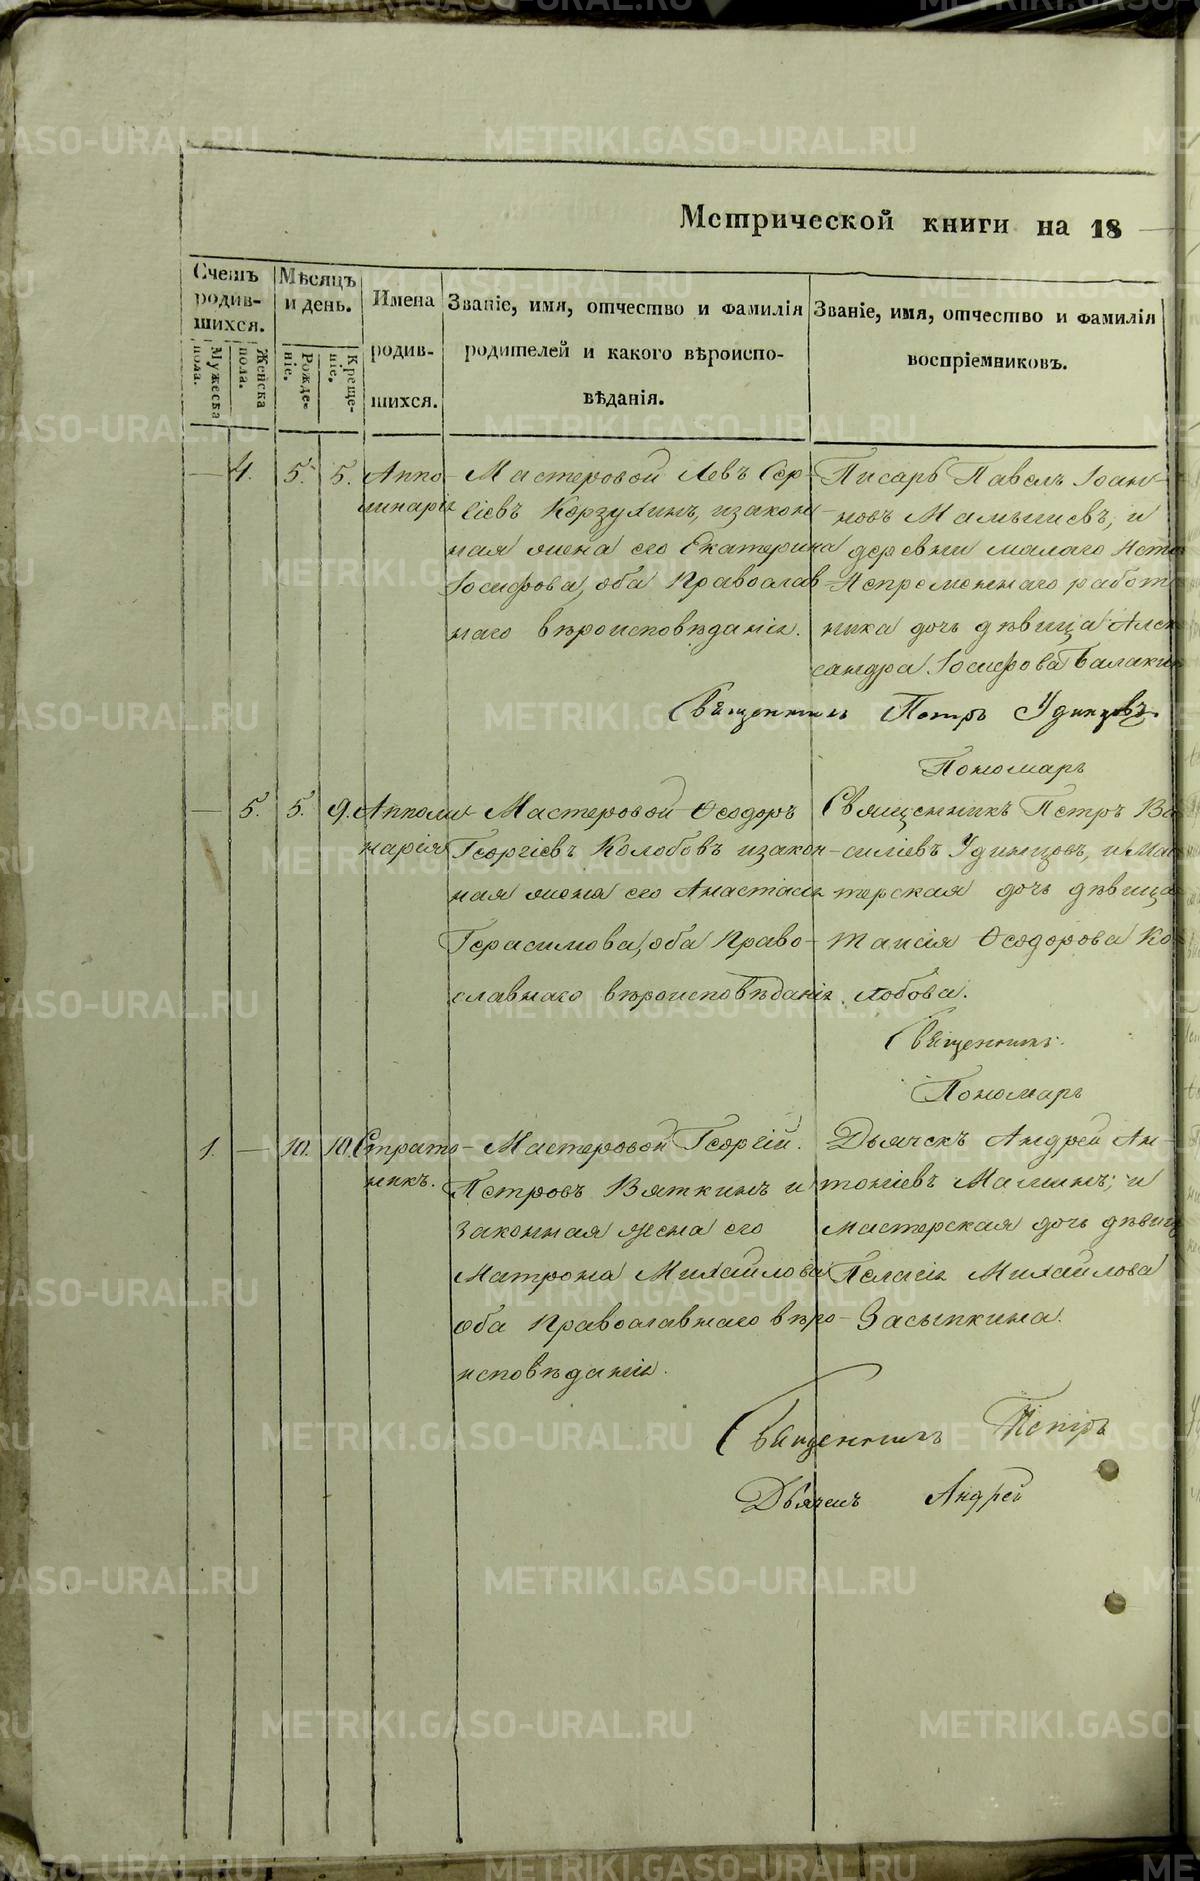 Метрической книги на 18
Счетъ родив-шихся.
Мужеска пола.
Женска пола.
Мѣсяцъ и день.
Рожде-ніе.
Креще-ніе.
Имена родив-шихся.
Званіе, имя, отчество и фамилія
родителей и какого вѣроиспо-
вѣданія.
Званіе, имя, отчество и фамилія
воспріемниковъ.
— 4. 5. 5. Аппо-
линарія
Мастеровой Левъ Сер-
гіевъ Корзухинъ, и закон-
ная жена его Екатерина
Іосифова, оба Православ-
наго вѣроисповѣданія.
Писарь Павелъ Іоан-
новъ Мамышевъ, и
деревни малаго Исто
Непременнаго работ
ника дочь дѣвица Алек
сандра Іосифова Балакин
Священникъ Петръ Удинцовъ.
Пономарь
— 5. 5. 9. Апполи-
нарія
Мастеровой Ѳеодоръ
Георгіевъ Колобовъ и закон-
ная жена его Анастасія
Герасимова, оба Право-
славнаго вѣроисповѣданія.
Священникъ Петръ Ва
силіевъ Удинцовъ, и Мас
терская дочь дѣвица
Таисія Ѳеодорова Ко
лобова.
Священникъ
Пономарь
1. — 10. 10. Страто-
никъ.
Мастеровой Георгій
Петровъ Вяткинъ и
законная жена его
Матрона Михайлова
оба Православнаго вѣро-
исповѣданія.
Дьячекъ Андрей Ан-
тоніевъ Маминъ; и
мастерская дочь дѣвица
Пелагія Михаилова
Засыпкина.
Священникъ Петръ
Дьячекъ Андрей
METRIKI.GASO-URAL.RU